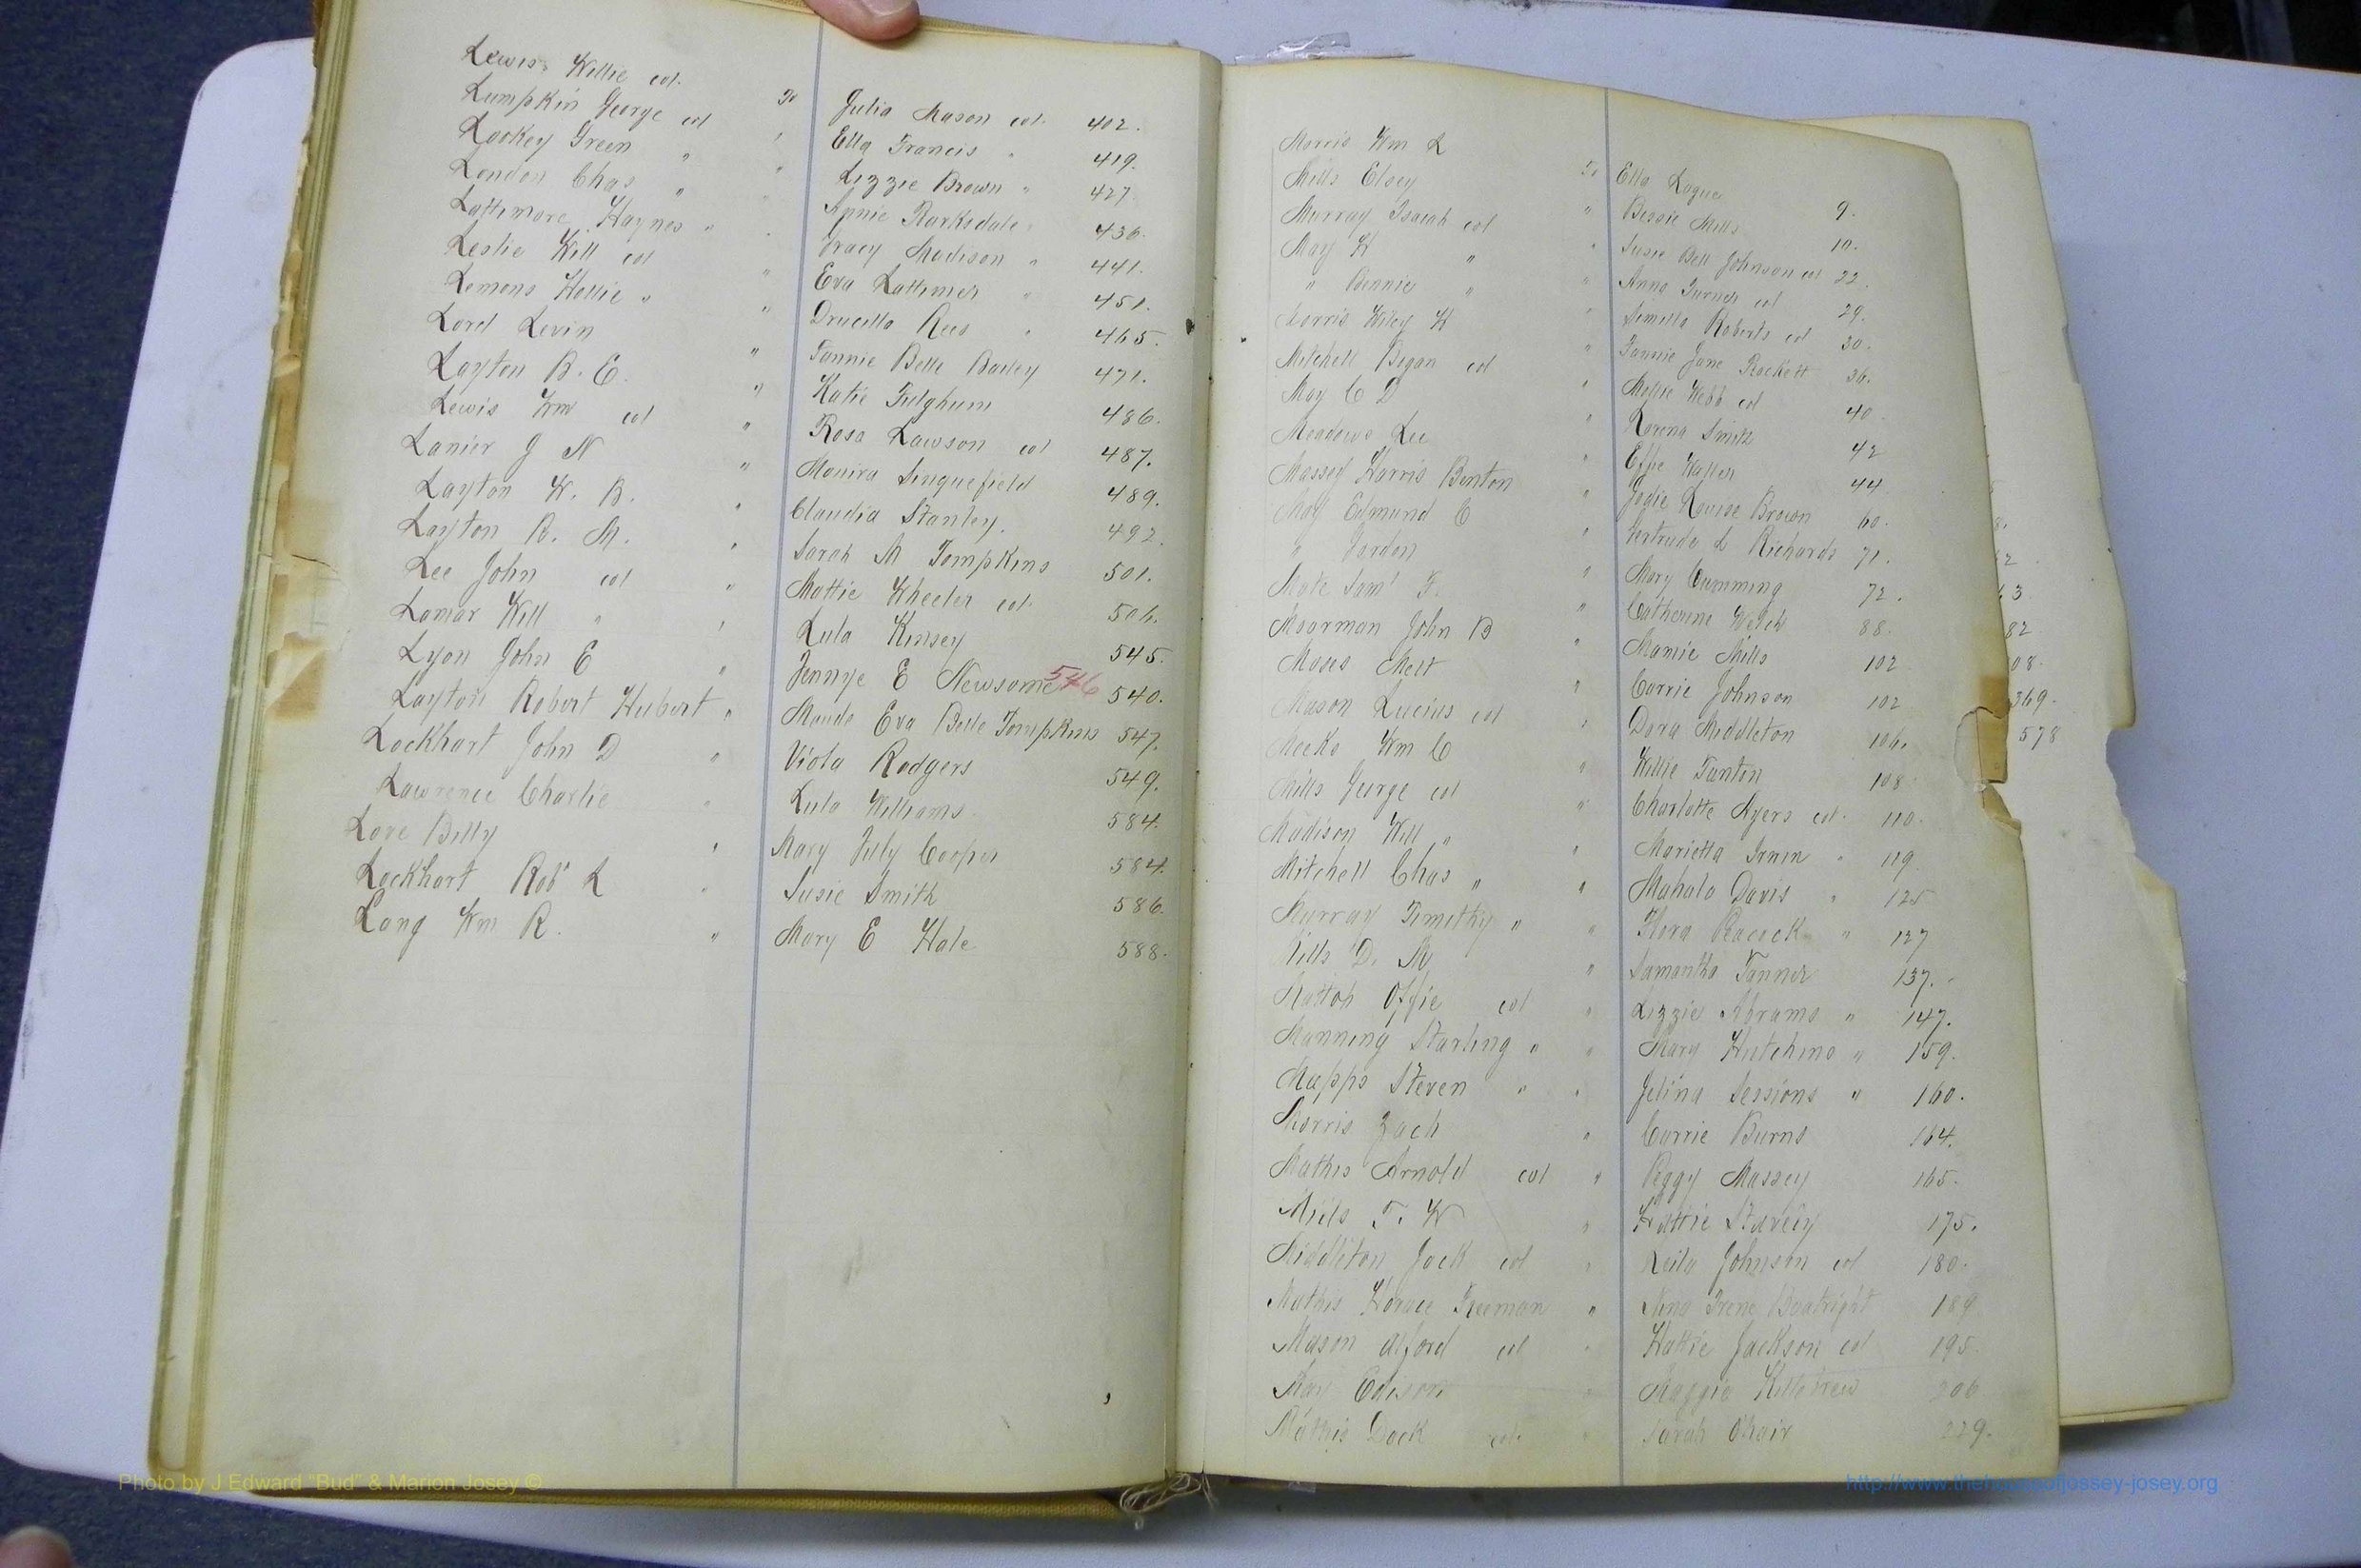 Lewis Willie col. To Julia Mason col. 402.
Lumpkin George col " Ella Francis " 419.
Lockey Green " " Lizzie Brown " 427
London Chas " " Annie Barksdale " 436.
Lattimore Haynes " " Tracy Madison " 441.
Leslie Will col " Eva Lattimer " 451.
Lemons Hollie " " Drucilla Rees " 465.
Lord Levin " Fannie Belle Bailey 471.
Layton B. E. " Katie Fulghum 486.
Lewis Wm col " Rosa Lawson col 487.
Lanier J N " Monira Sinquefield 489.
Layton W. B. " Claudia Stanley. 492.
Layton B. M. " Sarah M Tompkins 501.
Lee John col " Mattie Wheeler col. 506.
Lamar Will " " Lula Kinsey 545.
Lyon John E " Jennye E Newsome 546 540.
Layton Robert Hubert " Maude Eva Belle Tompkins 547.
Lockhart John D " Viola Rodgers 549.
Lawrence Charlie " Lula Williams 584.
Love Billy " Mary July Cooper 584.
Lockhart Robt L " Susie Smith 586.
Long Wm R. " Mary E Hale 588.
Morris Wm L To Ella Logue 9.
Mills Elsey " Bessie Mills 10.
Murray Isaiah col " Susie Bell Johnson col 22.
May W " " Anna Turner col 29.
" Bennie " " Roberts col 30.
Morris Wiley W " Fannie Jane Rockett 36.
Mitchell Began col " Mollie Webb col 40.
May C D " Lorena Smith 42
Meadows Lee " Effie Waller 44
Massey Harris Benton " Jodie Louise Brown 60.
May Edmund C " Gertrude L Richards 71.
" Gordon " Mary Cumming 72.
Mote Saml F. " Catherine Welch 88.
Moorman John B " Mamie Mills 102
Moses Melt " Carrie Johnson 102
Mason Lucius col " Dora Middleton 106.
Meeks Wm C " Willie Tanton 108
Mills George col " Charlotte Ayers col. 110.
Madison Will " " Marietta Irwin " 119
Mitchell Chas " " Mahala Davis " 125
Murray Timothy " " Flora Peacock " 127
Mills D. M " Samantha Tanner 137.
Mattox Offie col " Lizzie Abrams " 147.
Manning Starling " " Mary Hutchins " 159.
Mapps Steven " " Jelina Sessions " 160.
Morris Zach " Carrie Burns 164.
Mathis Arnold col " Peggy Massey 165.
Mills T. W " Hattie 175.
Middleton Jack col " Leila Johnson col 180.
Mathis Horace Freeman " Nina Irene Boatright 189
Mason Alford col " Hattie Jackson col 195.
May Edison " Maggie Killebrew 206
Mathis Dock col. " Sarah Chair 229.
82
369.
578
Photo by J Edward "Bud" & Marion Josey ©
http://www.thehouseofjossey-josey.org